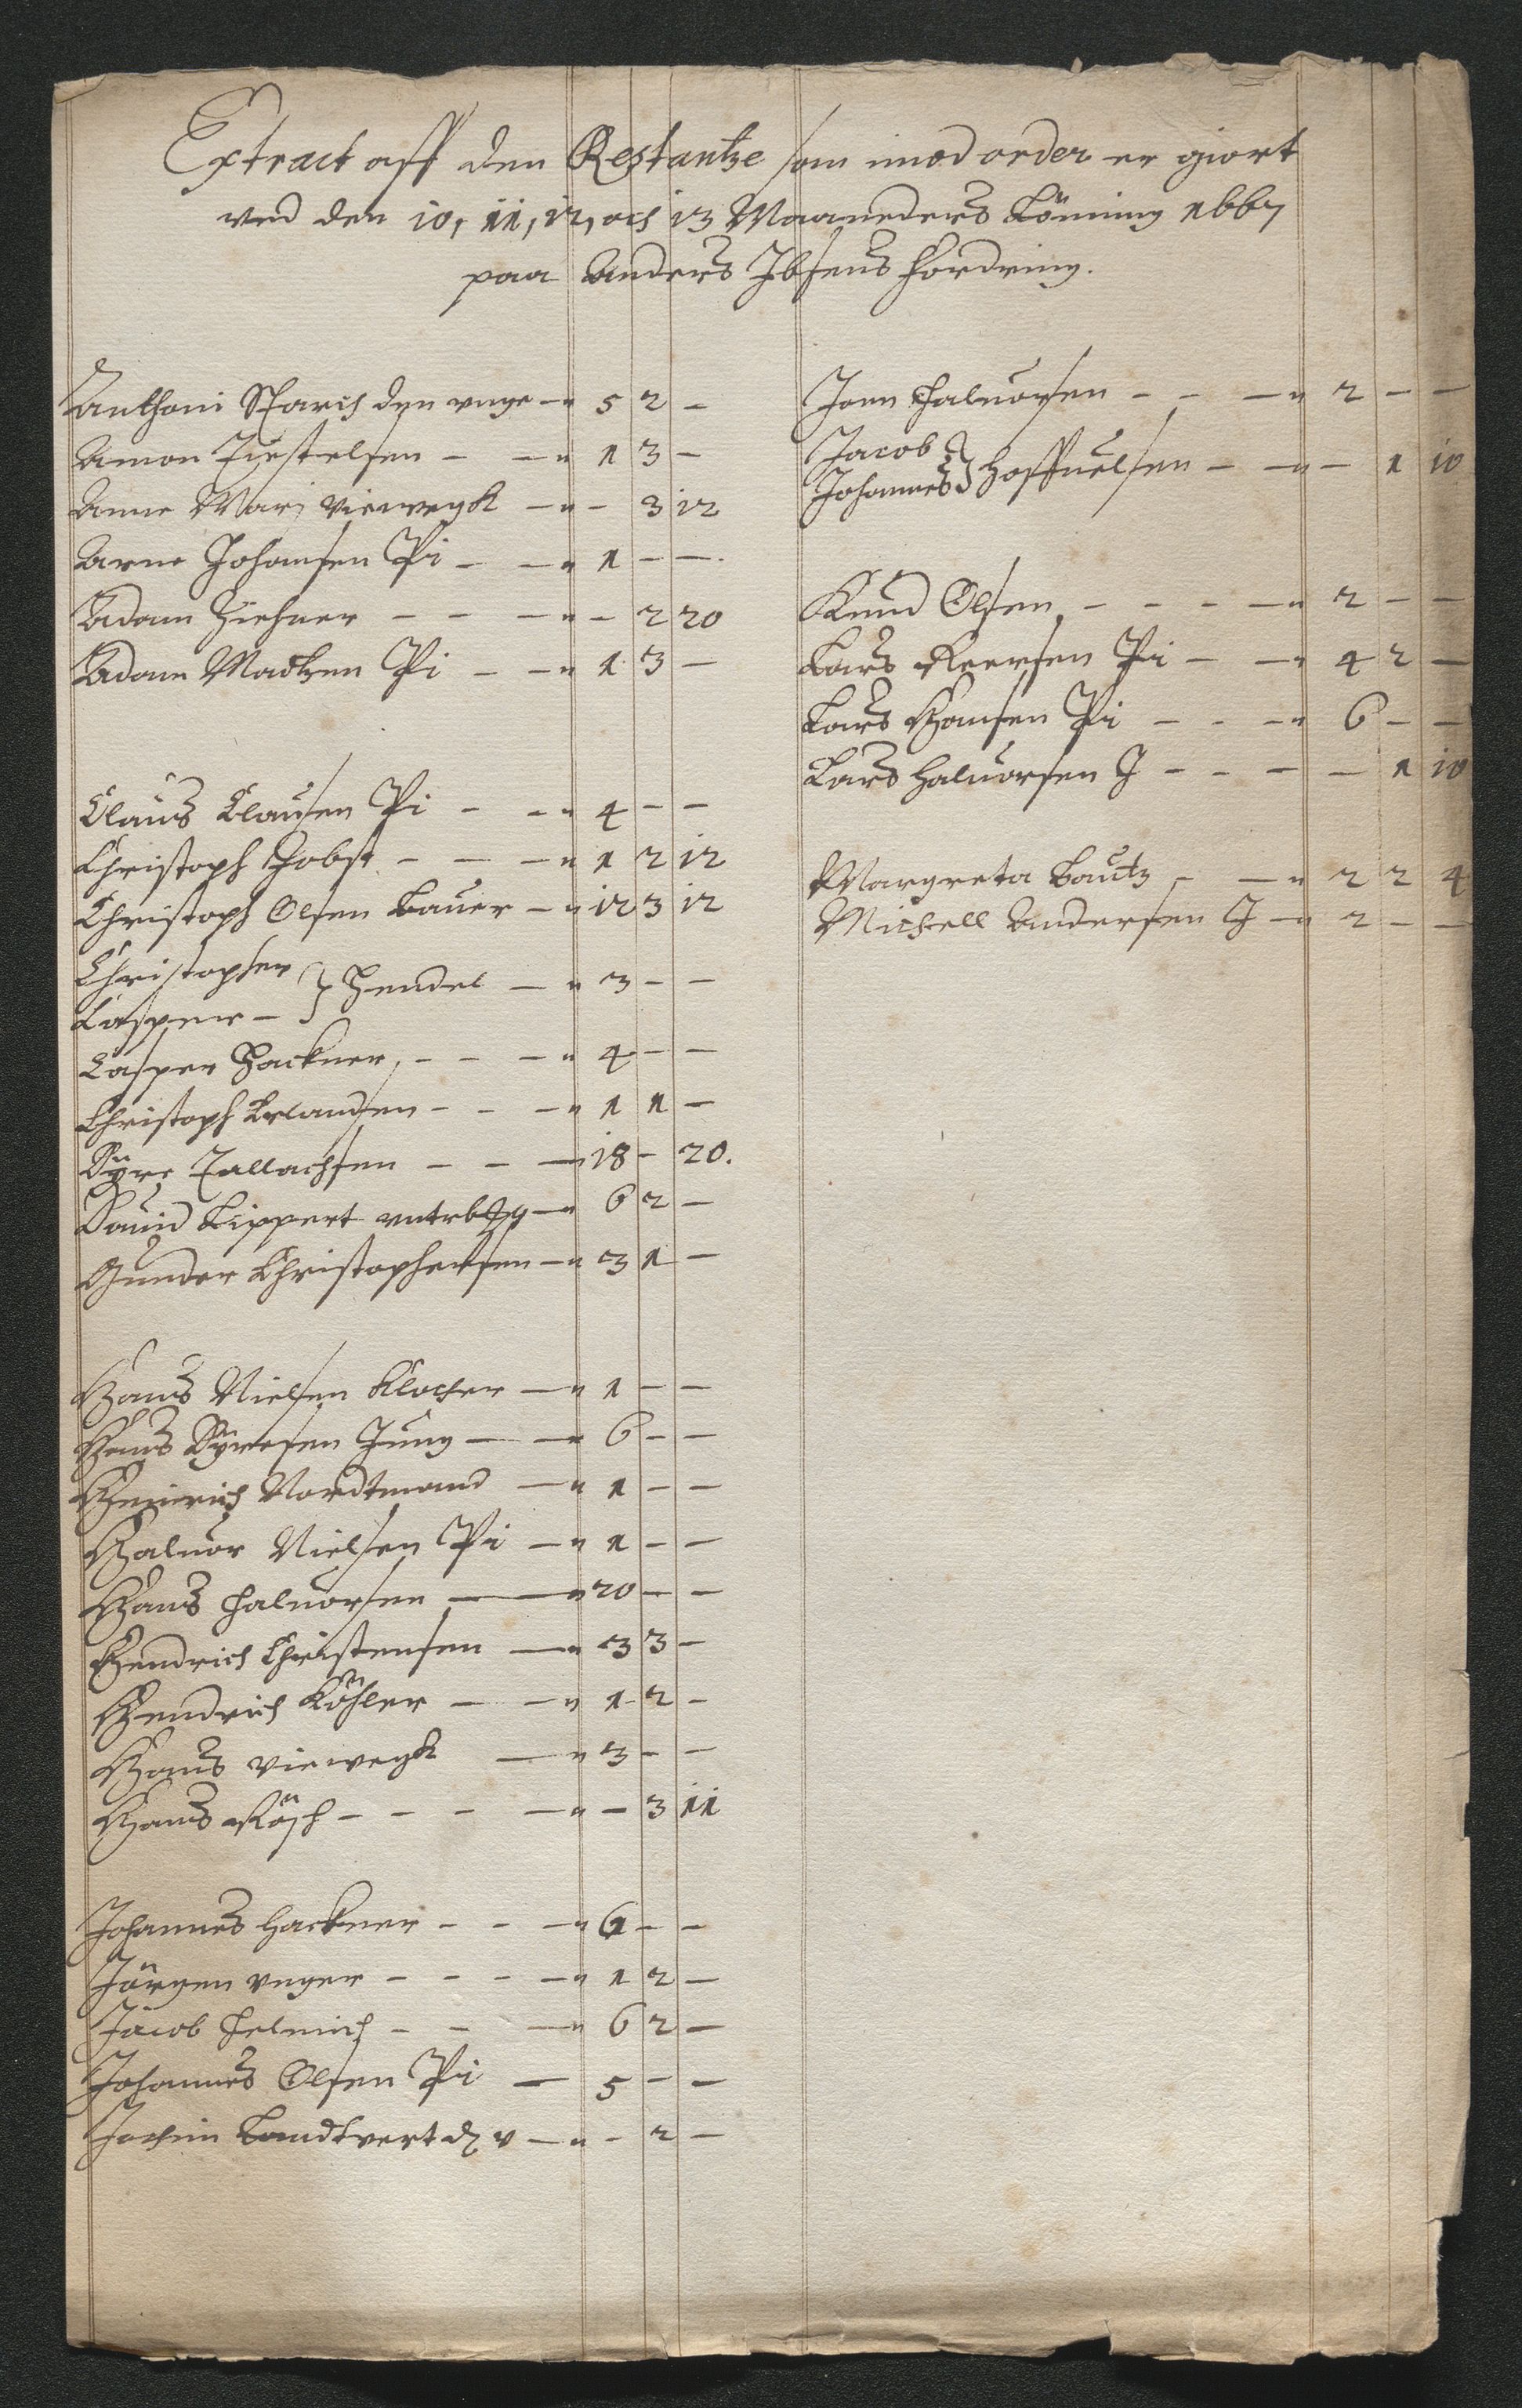 Extract aff den Restantze som imod order er giort
ved den 10, 11, 12, och 13 Maaneders Lönning 1667
paa Anders Ibsens fordring.
Anthoni Starch den unge — " 5 2 —
Amon Tiestelsen — — " 1 3 —
Anne Mari Vieweg — " — 3 12
Arne Johansen Pi — — " 1 — —
Adam Ziehner — — — " — 2 20
Adam Madtzen Pi — — " 1 3 —
Claus Clausen Pi — — " 4 — —
Christoph Jobst — — — " 1 2 12
Christoph Olsen Bauer — " 12 3 12
Christopher
Casper — } Hendel — " 3 — —
Casper Hackner — — — " 4 — —
Christoph Erlandsen — — — " 1 1 —
Dyre Tallachsen — — — 18 — 20.
David Lippert — " 6 2 —
Gunder Christophersen — " 3 1 —
Hans Nielsen Klocher — " 1 — —
Hans Dyresen Jung — — 6 — —
Heinrich Nordtmand — " 1 — —
Halvor Nielsen Pi — " 1 — —
Hans Halvorsen — — " 20 — —
Hendrich Christensen — " 3 3 —
Hendrich Köhler — — " 1 2 —
Hans Vieweg — " 3 — —
Hans Rösch — — — — " — 3 11
Johannes Hackner — — — " — —
Jörgen Unger — — — — " 1 2 —
Jacob Helmich — — — " 6 2 —
Johannes Olsen Pi — 5 — —
Jochim — " — 2 —
Jonn Halvorsen — — — " 2 — —
Jacob
Johannes } Hoffuelsen — — " — 1 10
Knud Olsen — — — — " 2 — —
Lars Peersen Pi — — " 4 2 —
Lars Hansen Pi — — — " 6 — —
Lars Halvorsen J — — — — 1 10
Margreta Bautz — — " 2 2 4
Michell Andersen J — " 2 — —